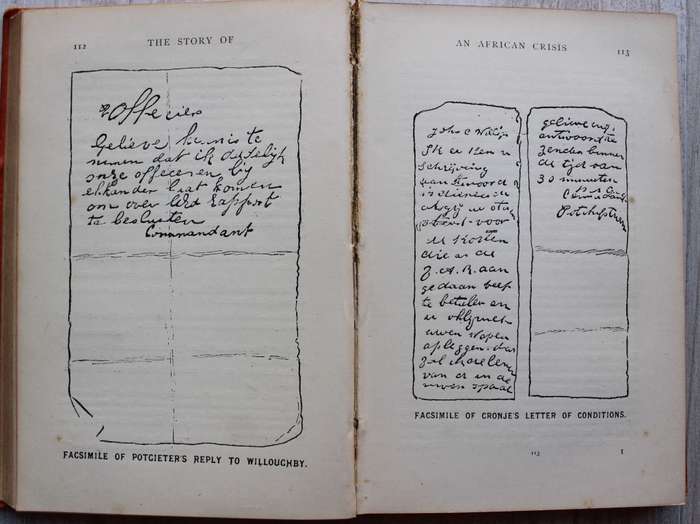 112
THE STORY OF
Officier
Gelieve kennis te
nemen dat ik dadelijk
onze officeeren by
elkander laat komen
om over Uld rapport
te besluiten
Commandant
FACSIMILE OF POTGIETER'S REPLY TO WILLOUGHBY.
AN AFRICAN CRISIS
113
John C Willo
Ik er ken u
Schrijving
van
is dienende
voor
U Kosten
die aan de
Z. A. R. aan
gedaan heef
te betalen en
u
uwen wapen
dan
Zal
van in de
uwen
gelieve mij
antwoord te
Zenden binnen
de tijd van
30 minuten
Potchefstroom
FACSIMILE OF CRONJE'S LETTER OF CONDITIONS.
113
I